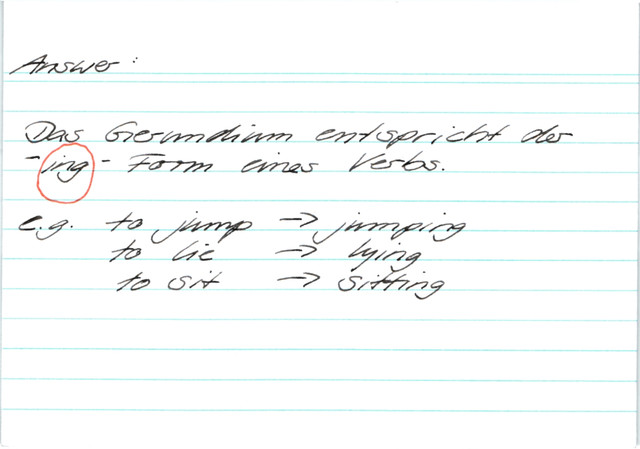 Answer:
Das Gerundium entspricht der
-ing-Form eines Verbs.
e.g. to jump → jumping
to lie → lying
to sit → sitting